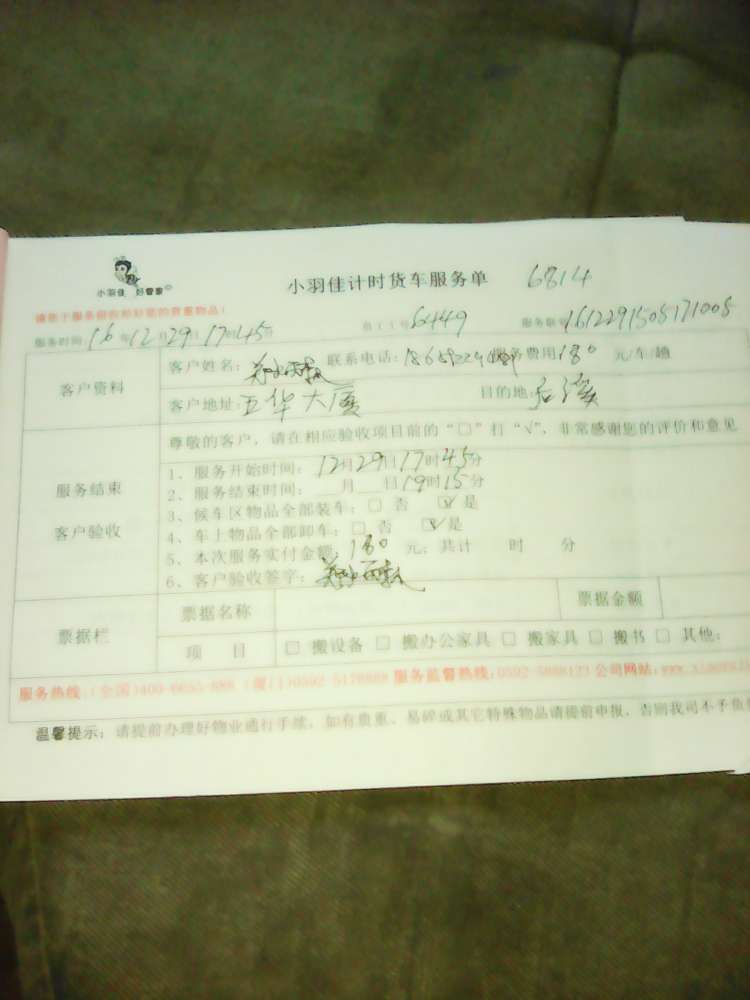 小羽佳 好管家
小羽佳计时货车服务单 6814
请你于服务前收拾好您的贵重物品!
服务时间: 16年12月29日17时45分 员工工号 6449 服务联号 1612291505171005
客户资料
客户姓名: 联系电话: 服务费用 180 元/车/趟
客户地址: 五华大厦 目的地:
服务结束
客户验收
尊敬的客户,请在相应验收项目前的“□”打“√”,非常感谢您的评价和意见
1、服务开始时间: 12月29日17时45分
2、服务结束时间: 月 日19时15分
3、候车区物品全部装车: □ 否 ☑ 是
4、车上物品全部卸车: □ 否 ☑ 是
5、本次服务实付金额: 180 元; 共计 时 分
6、客户验收签字:
票据栏
票据名称 票据金额
项 目 □ 搬设备 □ 搬办公家具 □ 搬家具 □ 搬书 □ 其他:
服务热线: (全国)400-6655-888 (厦门)0592-5178888 服务监督热线: 0592-5888123 公司网站:
温馨提示: 请提前办理好物业通行手续, 如有贵重、易碎或其它特殊物品请提前申报, 否则我司不予负